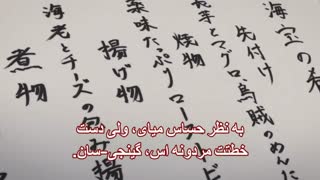 海宝の
先付け
芋とマグロ、烏賊のめんた
焼物
薬味たっぷりロースト ビ
揚げ物
海老とチーズの包み揚
煮物
به نظر حساس میای، ولی دست
خطتت مردونه اس، گینجی-سان.